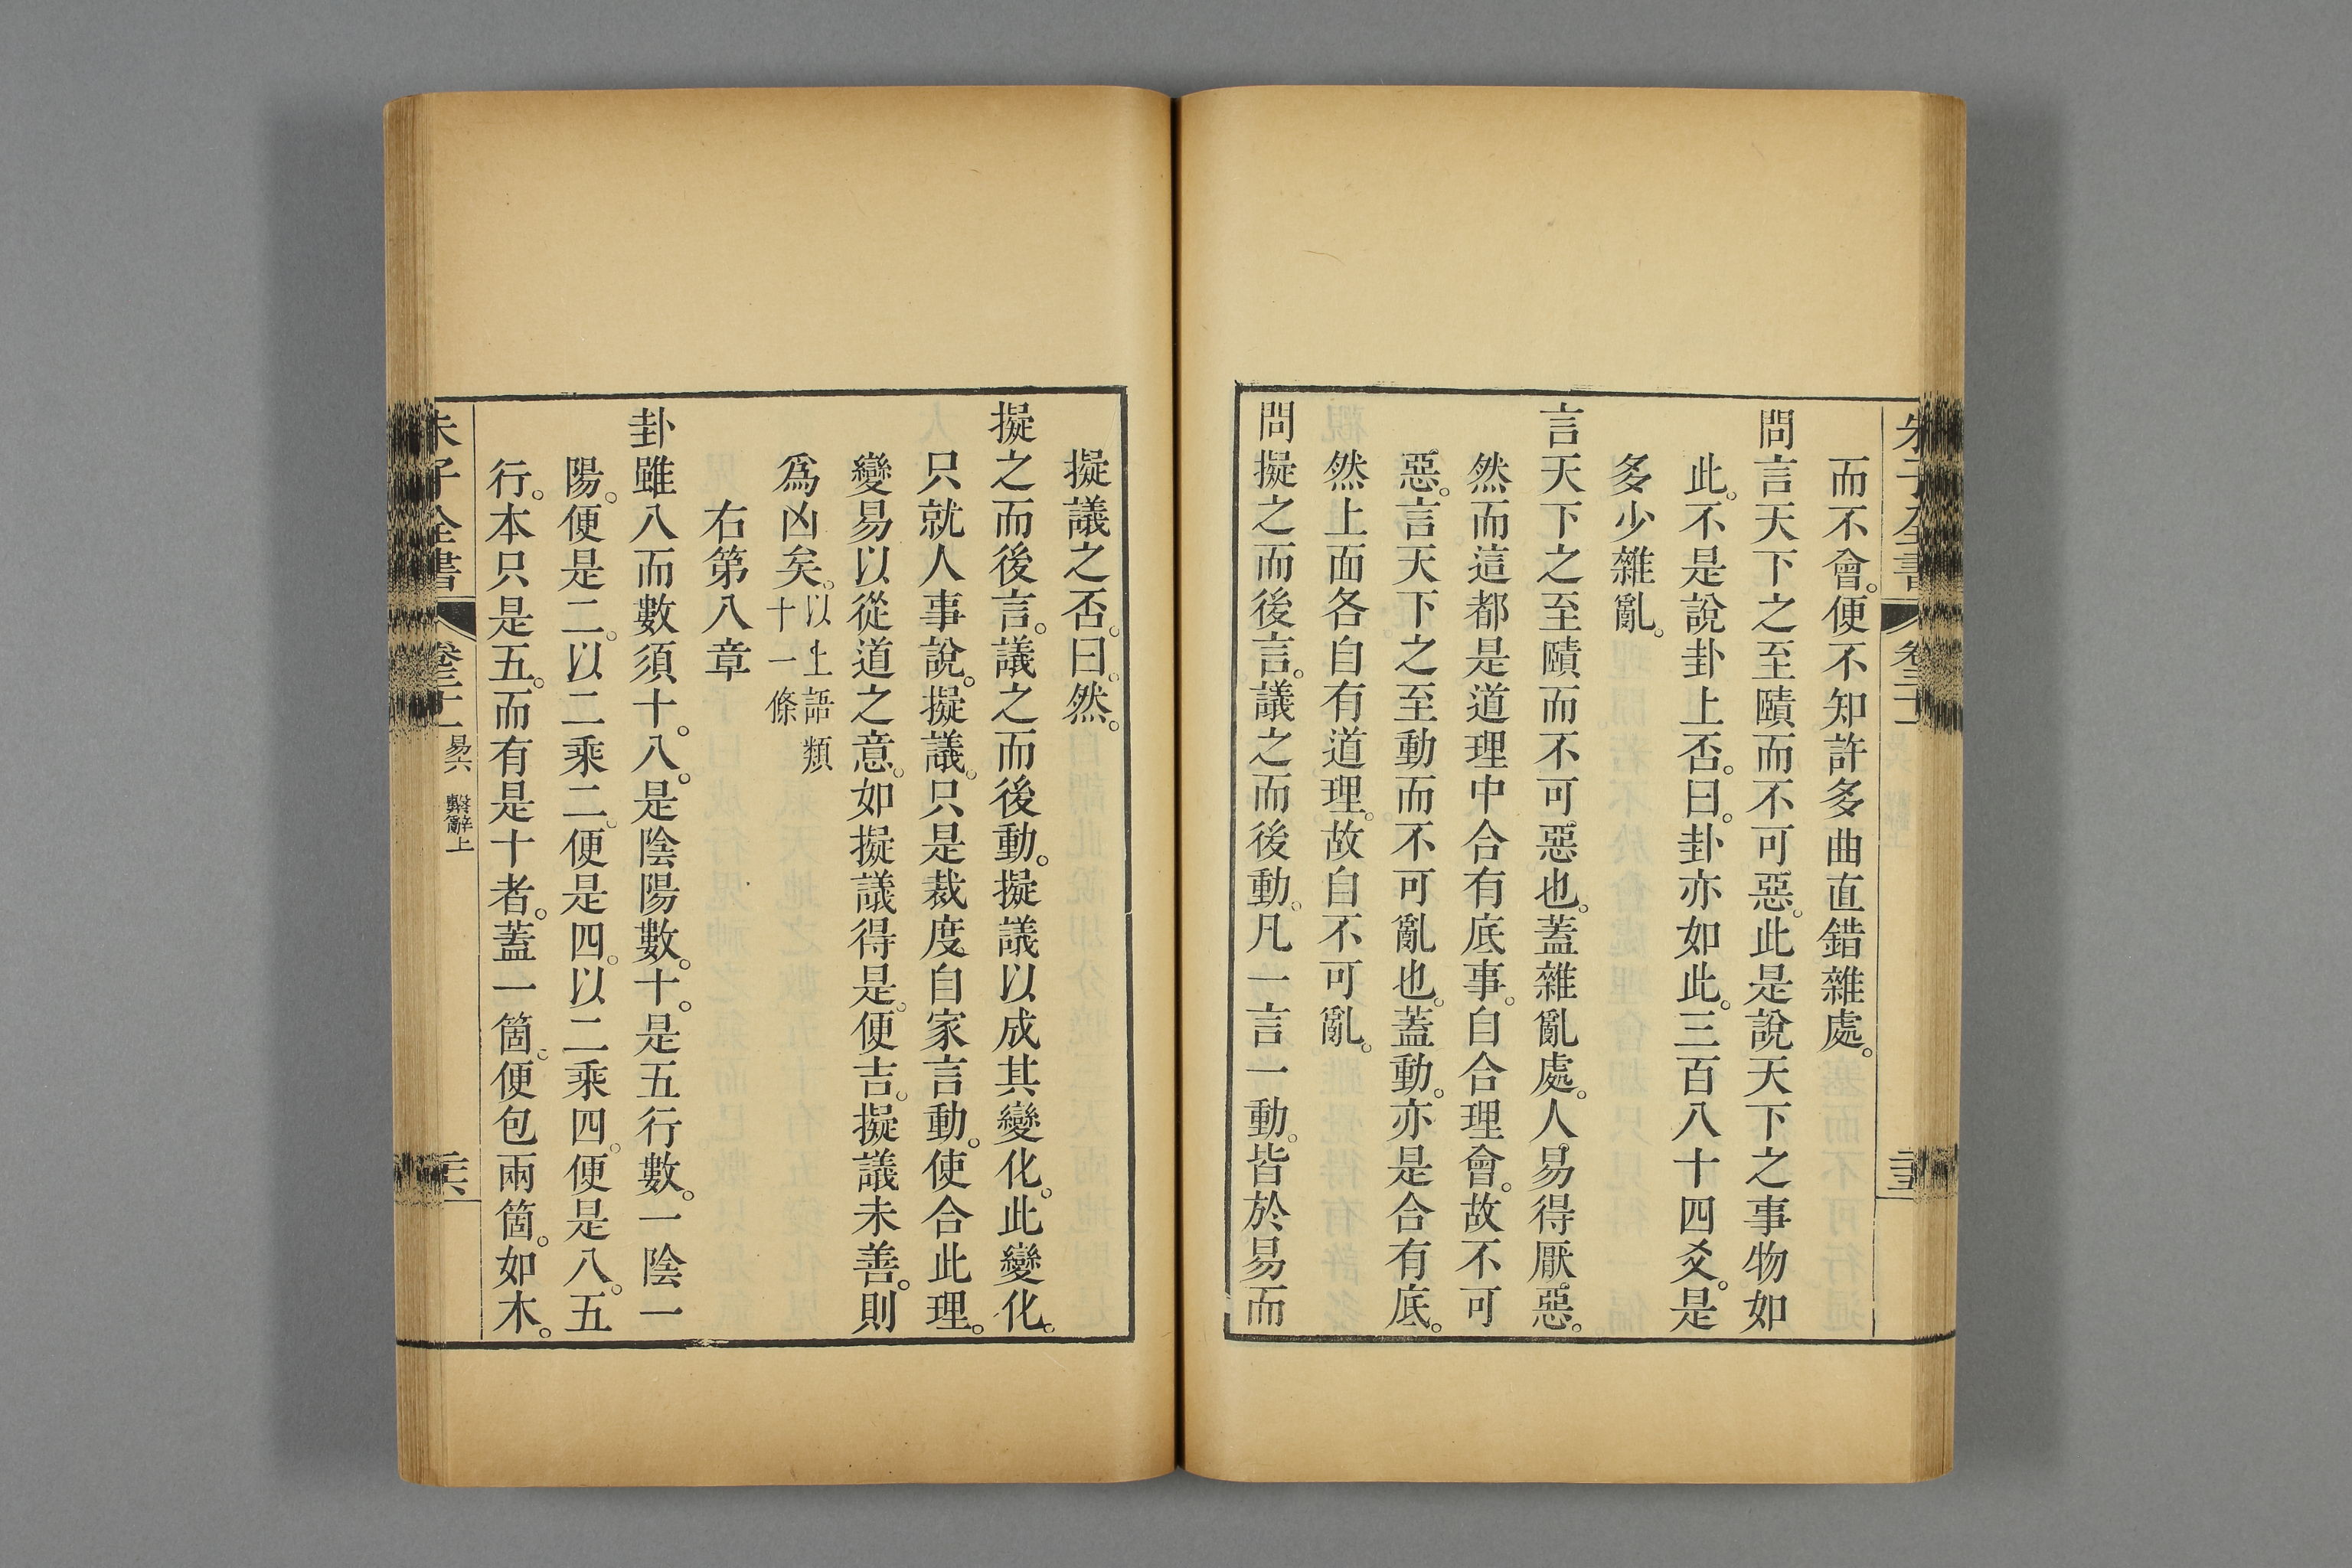 朱子全書 卷三十一 三五
而不會。便不知許多曲直錯雜處。
問言天下之至賾而不可惡。此是說天下之事物如
此。不是說卦上否。曰。卦亦如此。三百八十四爻。是
多少雜亂。
言天下之至賾而不可惡也。蓋雜亂處。人易得厭惡。
然而這都是道理中合有底事。自合理會。故不可
惡。言天下之至動而不可亂也。蓋動。亦是合有底。
然上面各自有道理。故自不可亂。
問擬之而後言。議之而後動。凡一言一動。皆於易而
擬議之否。曰。然。
擬之而後言。議之而後動。擬議以成其變化。此變化。
只就人事說。擬議。只是裁度自家言動。使合此理。
變易以從道之意。如擬議得是。便吉。擬議未善。則
爲凶矣。以上語類
十一條
右第八章
卦雖八而數須十。八。是陰陽數。十。是五行數。一陰一
陽。便是二。以二乘二。便是四。以二乘四。便是八。五
行。本只是五。而有是十者。蓋一箇。便包兩箇。如木。
朱子全書 卷三十一 易六 繫辭上 三六